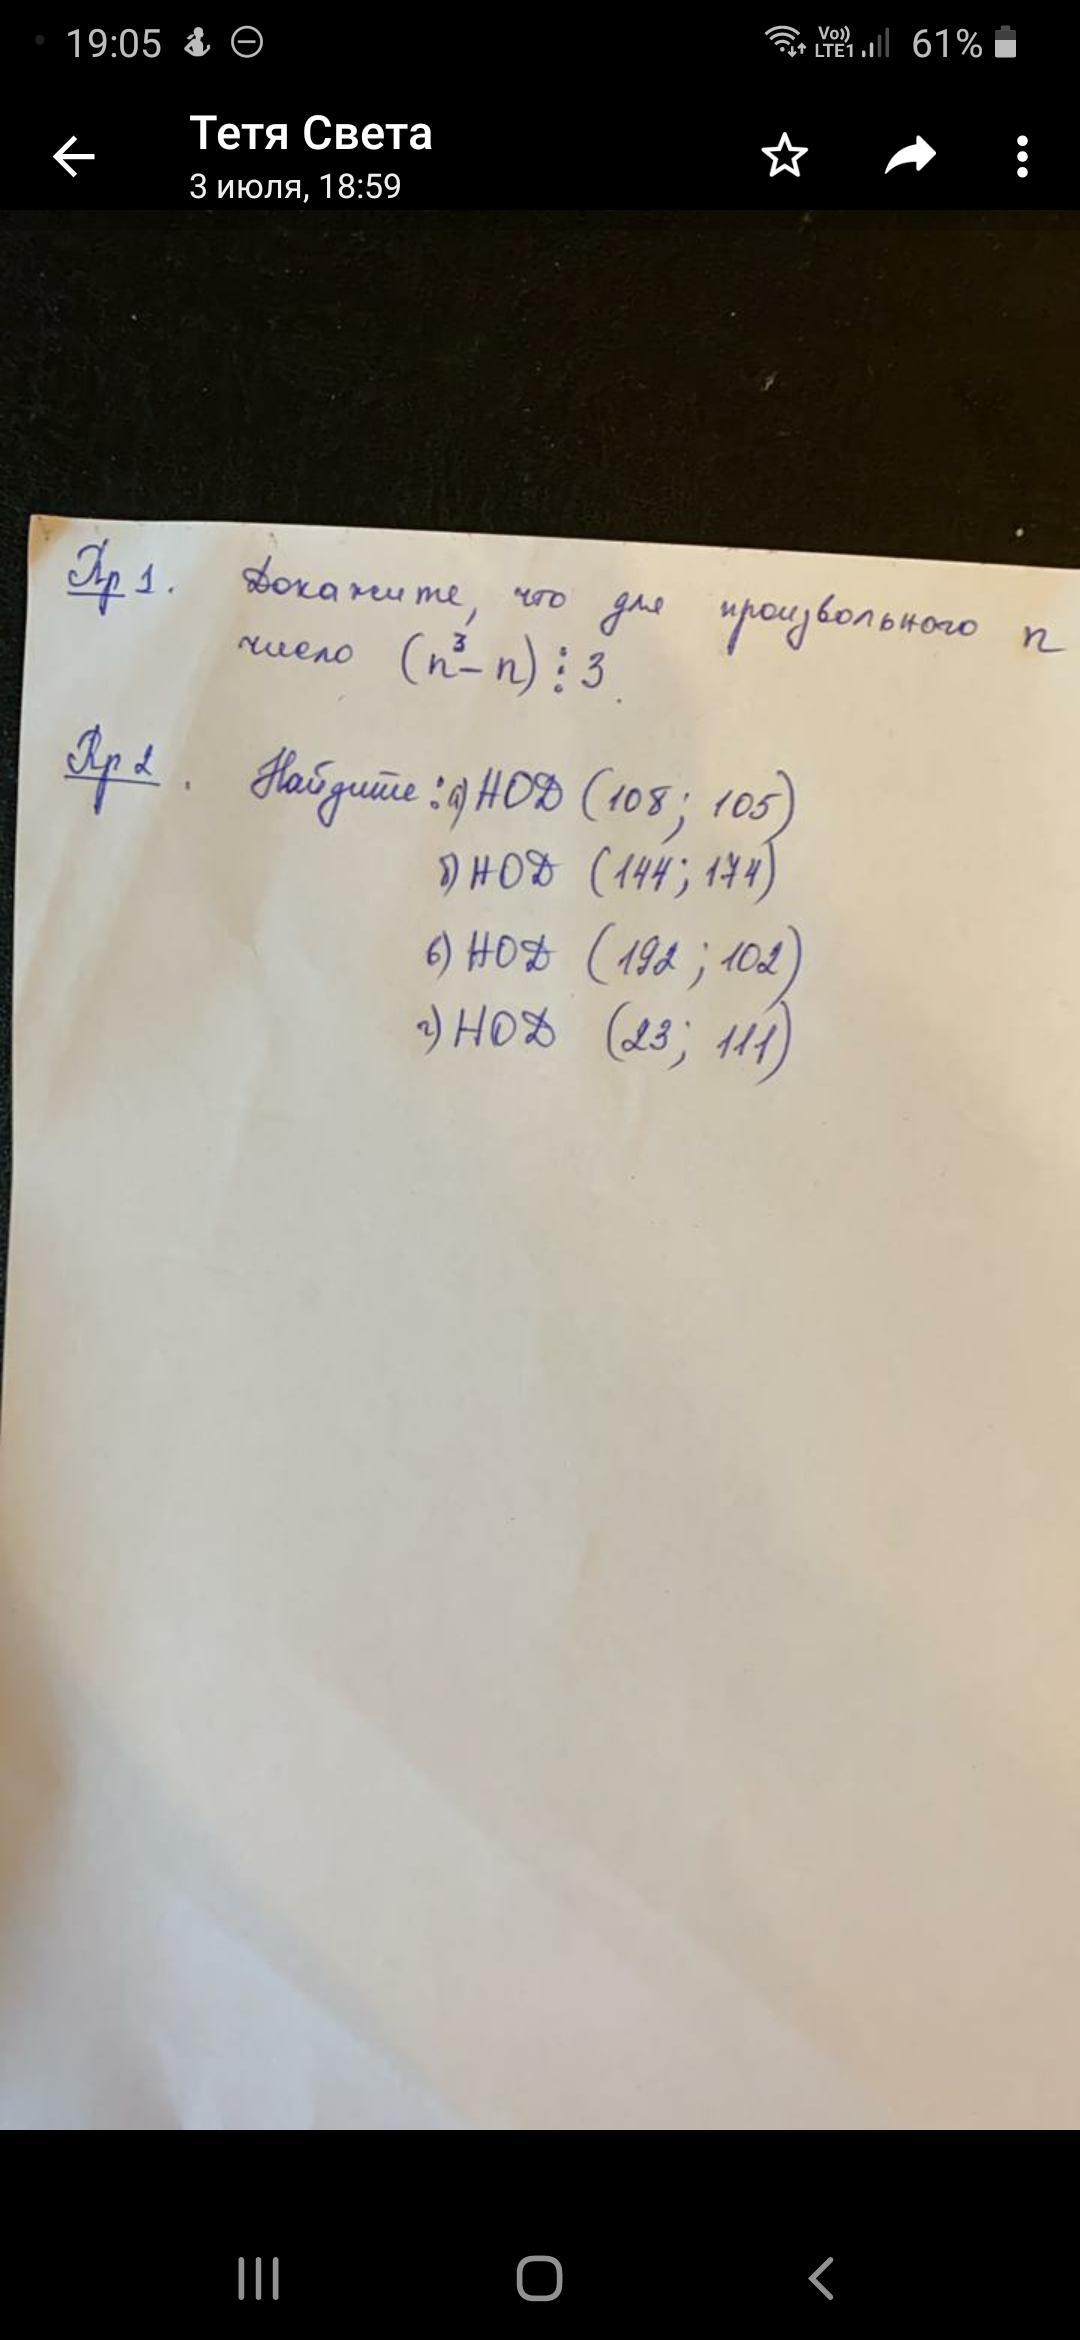 19:05
Vo))
LTE1
61%
Тетя Света
3 июля, 18:59
Пр 1. Докажите, что для произвольного n
число (n³ - n) ⋮ 3.
Пр 2. Найдите: а) НОД (108; 105)
б) НОД (144; 174)
в) НОД (192; 102)
г) НОД (23; 111)